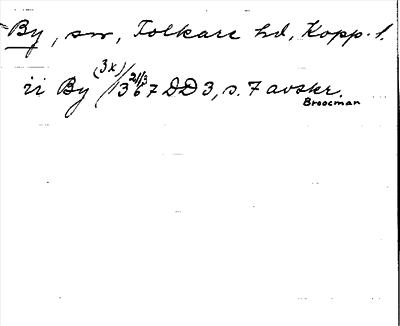 By, sn, Folkare hd, Kopp. l.
ii By (3x) 21/3 1367 DD 3, s. 7 avskr.
Broocman